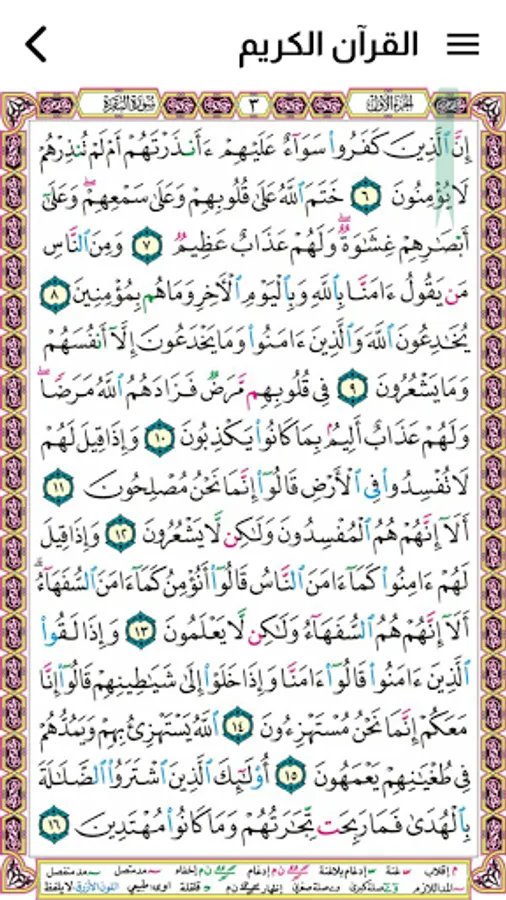 القرآن الكريم
سورة البقرة ٣ الجزء الأول
إِنَّ ٱلَّذِينَ كَفَرُوا۟ سَوَآءٌ عَلَيْهِمْ ءَأَنذَرْتَهُمْ أَمْ لَمْ تُنذِرْهُمْ
لَا يُؤْمِنُونَ ٦ خَتَمَ ٱللَّهُ عَلَىٰ قُلُوبِهِمْ وَعَلَىٰ سَمْعِهِمْ ۖ وَعَلَىٰٓ
أَبْصَٰرِهِمْ غِشَٰوَةٌ ۖ وَلَهُمْ عَذَابٌ عَظِيمٌ ٧ وَمِنَ ٱلنَّاسِ
مَن يَقُولُ ءَامَنَّا بِٱللَّهِ وَبِٱلْيَوْمِ ٱلْأَخِرِ وَمَا هُم بِمُؤْمِنِينَ ٨
يُخَٰدِعُونَ ٱللَّهَ وَٱلَّذِينَ ءَامَنُوا۟ وَمَا يَخْدَعُونَ إِلَّآ أَنفُسَهُمْ
وَمَا يَشْعُرُونَ ٩ فِى قُلُوبِهِم مَّرَضٌ فَزَادَهُمُ ٱللَّهُ مَرَضًا ۖ
وَلَهُمْ عَذَابٌ أَلِيمٌۢ بِمَا كَانُوا۟ يَكْذِبُونَ ١٠ وَإِذَا قِيلَ لَهُمْ
لَا تُفْسِدُوا۟ فِى ٱلْأَرْضِ قَالُوٓا۟ إِنَّمَا نَحْنُ مُصْلِحُونَ ١١
أَلَآ إِنَّهُمْ هُمُ ٱلْمُفْسِدُونَ وَلَٰكِن لَّا يَشْعُرُونَ ١٢ وَإِذَا قِيلَ
لَهُمْ ءَامِنُوا۟ كَمَآ ءَامَنَ ٱلنَّاسُ قَالُوٓا۟ أَنُؤْمِنُ كَمَآ ءَامَنَ ٱلسُّفَهَآءُ ۗ
أَلَآ إِنَّهُمْ هُمُ ٱلسُّفَهَآءُ وَلَٰكِن لَّا يَعْلَمُونَ ١٣ وَإِذَا لَقُوا۟
ٱلَّذِينَ ءَامَنُوا۟ قَالُوٓا۟ ءَامَنَّا وَإِذَا خَلَوْا۟ إِلَىٰ شَيَٰطِينِهِمْ قَالُوٓا۟ إِنَّا
مَعَكُمْ إِنَّمَا نَحْنُ مُسْتَهْزِءُونَ ١٤ ٱللَّهُ يَسْتَهْزِئُ بِهِمْ وَيَمُدُّهُمْ
فِى طُغْيَٰنِهِمْ يَعْمَهُونَ ١٥ أُو۟لَٰٓئِكَ ٱلَّذِينَ ٱشْتَرَوُا۟ ٱلضَّلَٰلَةَ
بِٱلْهُدَىٰ فَمَا رَبِحَت تِّجَٰرَتُهُمْ وَمَا كَانُوا۟ مُهْتَدِينَ ١٦